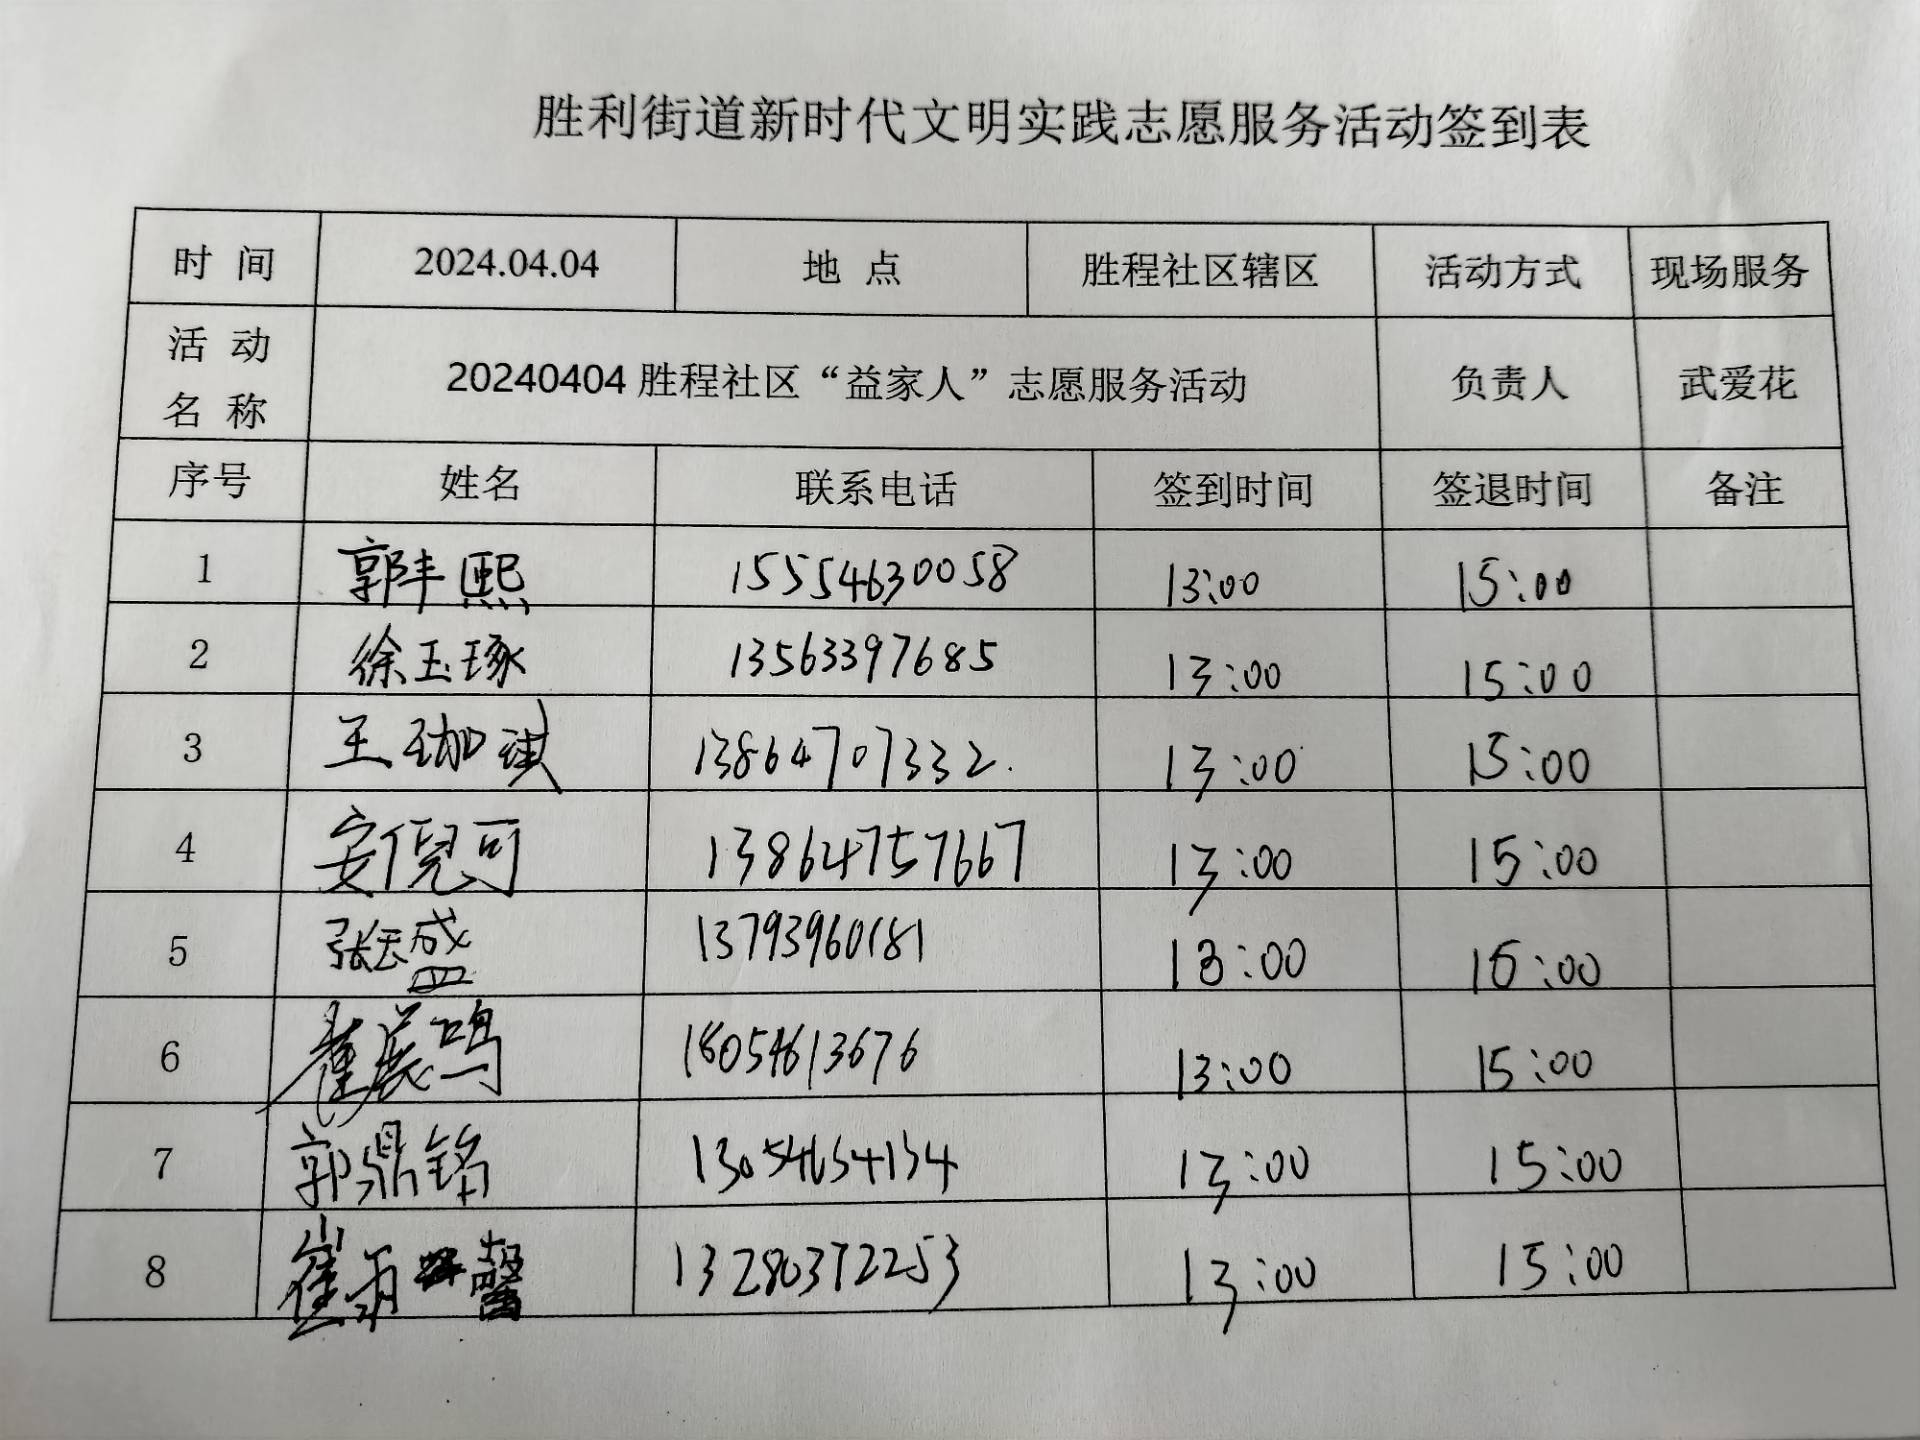 胜利街道新时代文明实践志愿服务活动签到表
时 间 2024.04.04 地 点 胜程社区辖区 活动方式 现场服务
活 动
名 称 20240404 胜程社区“益家人”志愿服务活动 负责人 武爱花
序号 姓名 联系电话 签到时间 签退时间 备注
1 郭丰熙 15554630058 13:00 15:00
2 徐玉琢 13563397685 13:00 15:00
3 王珈琪 13864707332. 13:00 15:00
4 安倪可 13864757667 13:00 15:00
5 张云盛 13793960181 13:00 15:00
6 崔晨鸣 18054613676 13:00 15:00
7 郭鼎铭 13054654134 13:00 15:00
8 崔雨馨 13280372253 13:00 15:00